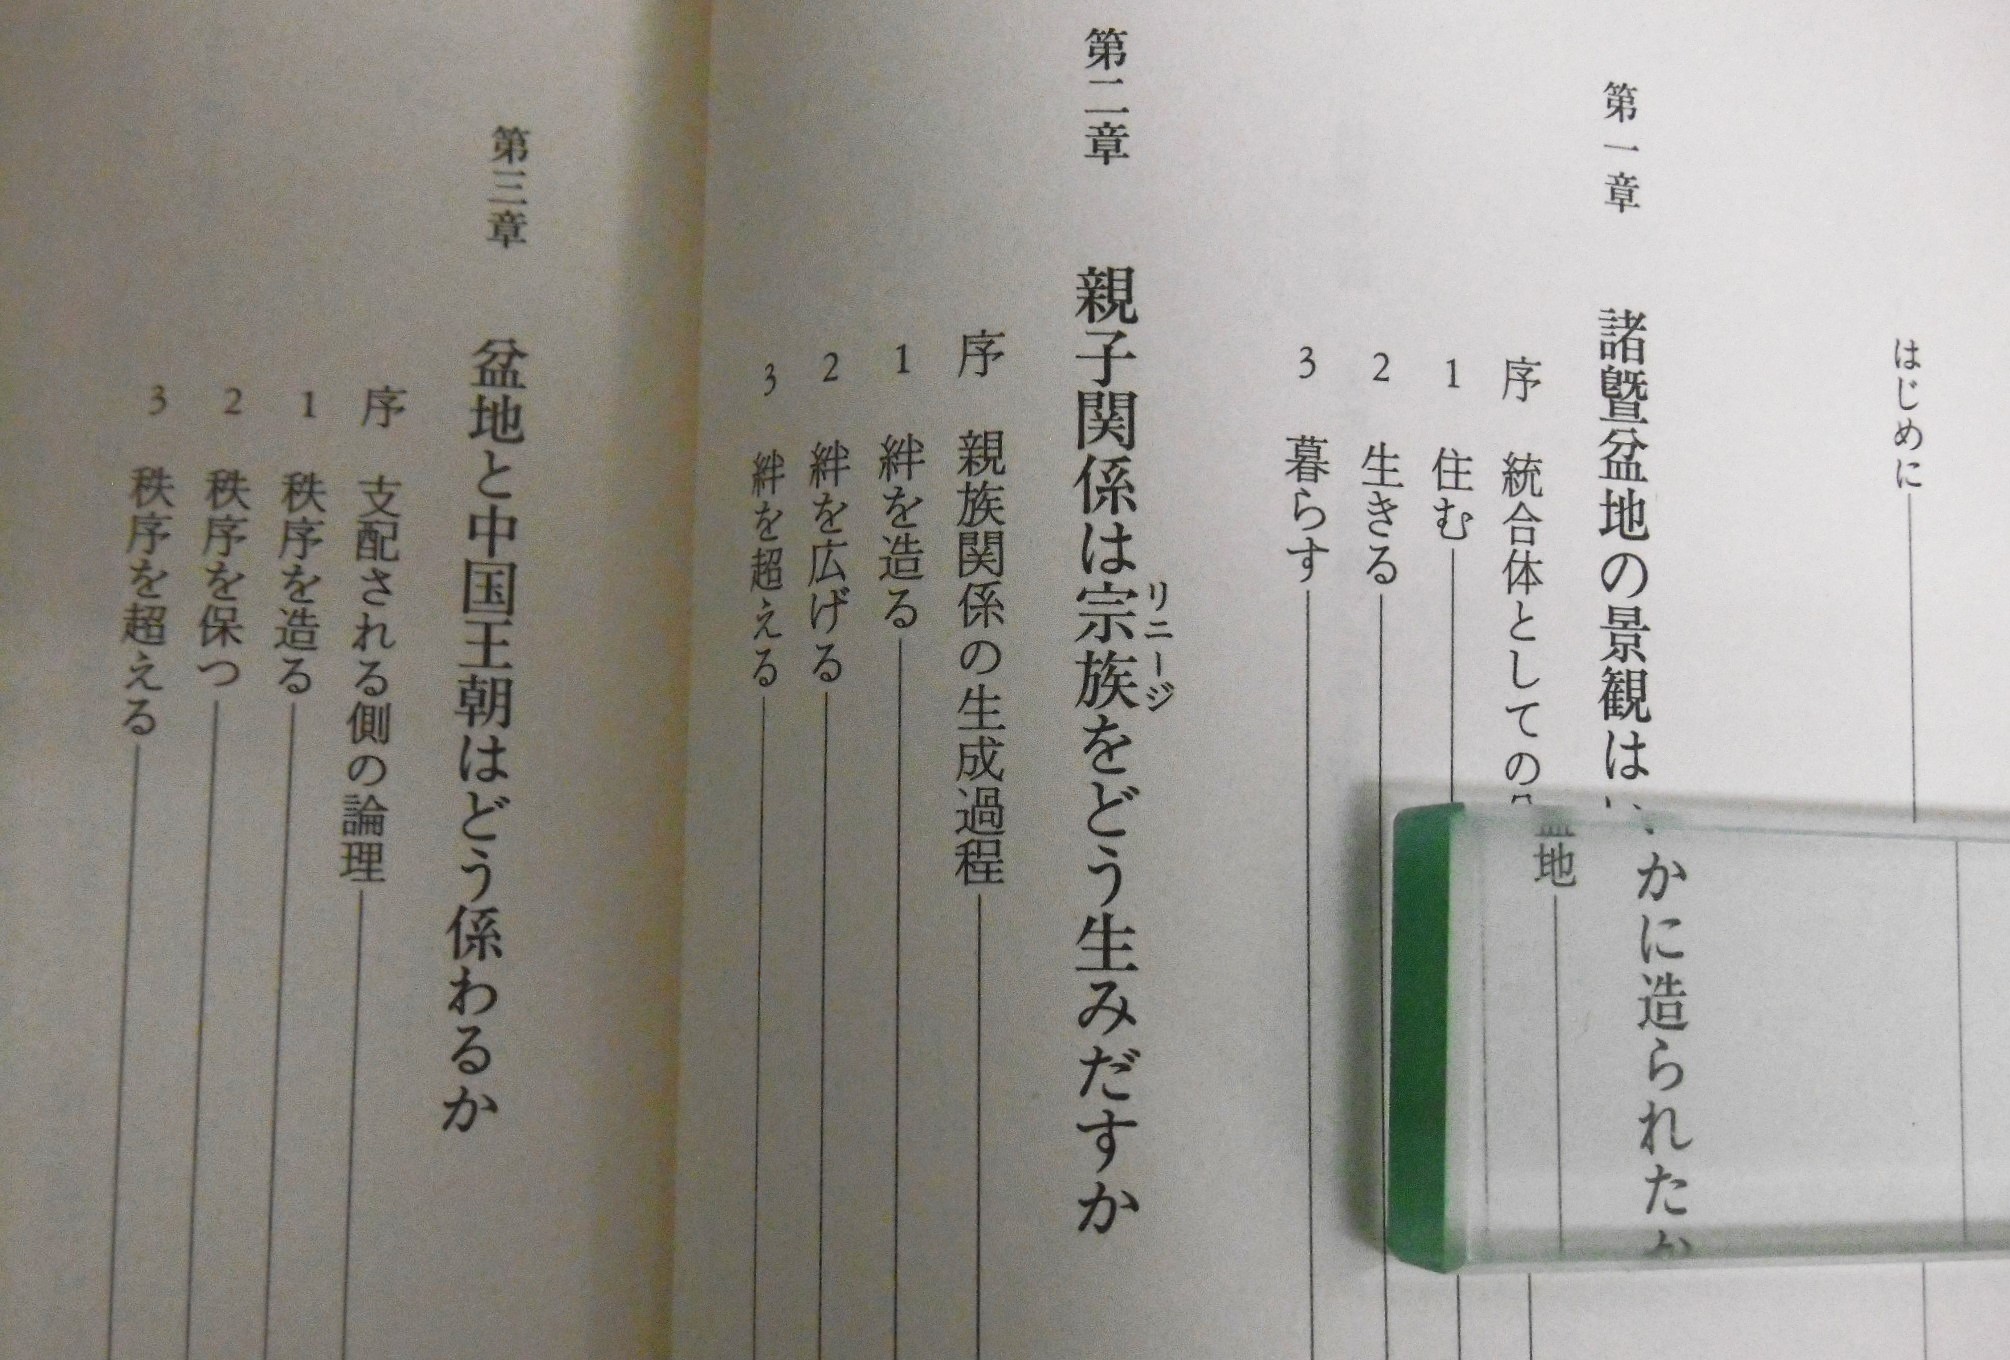 はじめに
第一章 諸曁盆地の景観はいかに造られたか
序 統合体としての盆地
1 住む
2 生きる
3 暮らす
第二章 親子関係は宗族をどう生みだすか
リニージ
序 親族関係の生成過程
1 絆を造る
2 絆を広げる
3 絆を超える
第三章 盆地と中国王朝はどう係わるか
序 支配される側の論理
1 秩序を造る
2 秩序を保つ
3 秩序を超える